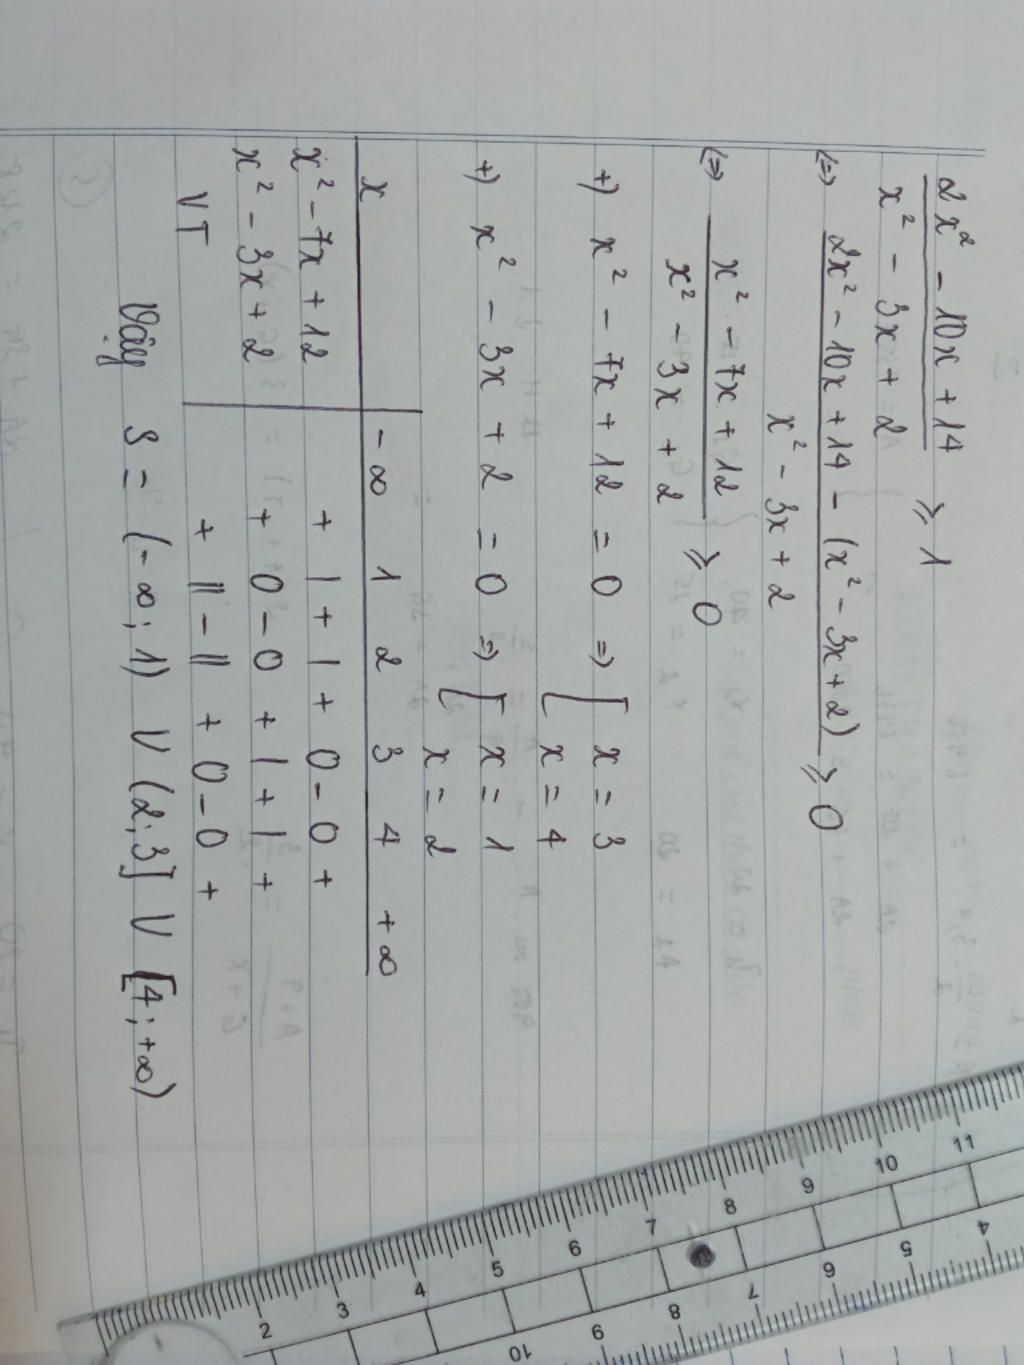 2x² - 10x + 14
x² - 3x + 2
≥ 1
(=) 2x² - 10x + 14 - (x² - 3x + 2) ≥ 0
x² - 3x + 2
(=) x² - 7x + 12 ≥ 0
x² - 3x + 2
+) x² - 7x + 12 = 0 => [ x = 3
x = 4
+) x² - 3x + 2 = 0 => [ x = 1
x = 2
x | -∞ 1 2 3 4 +∞
x² - 7x + 12 | + | + | + 0 - 0 +
x² - 3x + 2 | + 0 - 0 + | + | +
VT | + || - || + 0 - 0 +
Vậy S = (-∞; 1) U (2; 3] U [4; +∞)
2
11
10
9
8
7
6
5
4
3
2
4
5
6
7
8
9
10